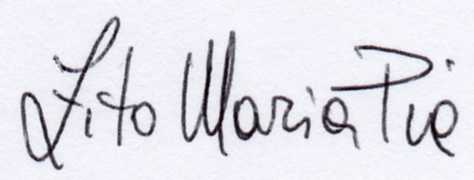 Zito Maria Pia